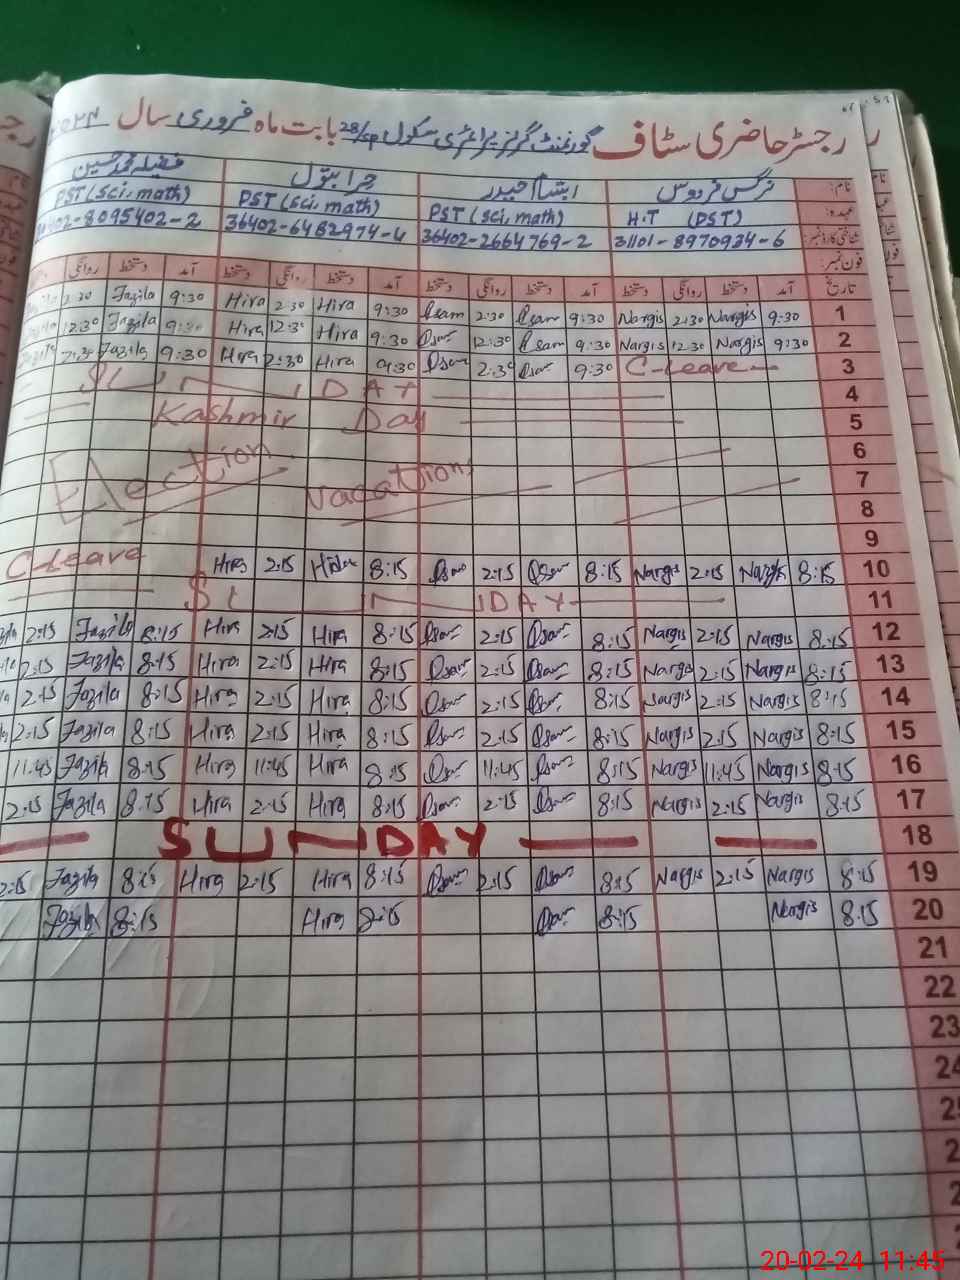 رجسٹر حاضری سٹاف گورنمنٹ گرلز پرائمری سکول 28/SP بابت ماہ فروری سال ۲۰۲۴
نام: نرگس فردوس حرا بتول
عہدہ: H.T (PST) PST (Sci, math) PST (Sci, math) PST (Sci, math)
شناختی کارڈ نمبر: 31101-8970934-6 36402-2664769-2 36402-6482974-4 02-8095402-2
فون نمبر:
تاریخ آمد دستخط روانگی دستخط آمد دستخط روانگی دستخط آمد دستخط روانگی دستخط آمد دستخط روانگی
2:30 Fazila 9:30 Hira 2:30 Hira 9:30 Qsam 2:30 Qsam 9:30 Nargis 2:30 Nargis 9:30 1
12:30 Fazila 9:30 Hira 12:30 Hira 9:30 Qsam 12:30 Qsam 9:30 Nargis 12:30 Nargis 9:30 2
2:30 Fazila 9:30 Hira 2:30 Hira 9:30 Qsam 2:30 Qsam 9:30 C-Leave 3
SUNDAY 4
Kashmir Day 5
6
Election Vacations 7
8
9
C-Leave Hira 2:15 Hira 8:15 Qsam 2:15 Qsam 8:15 Nargis 2:15 Nargis 8:15 10
SUNDAY 11
2:15 Fazila 8:15 Hira 2:15 Hira 8:15 Qsam 2:15 Qsam 8:15 Nargis 2:15 Nargis 8:15 12
2:15 Fazila 8:15 Hira 2:15 Hira 8:15 Qsam 2:15 Qsam 8:15 Nargis 2:15 Nargis 8:15 13
2:15 Fazila 8:15 Hira 2:15 Hira 8:15 Qsam 2:15 Qsam 8:15 Nargis 2:15 Nargis 8:15 14
2:15 Fazila 8:15 Hira 2:15 Hira 8:15 Qsam 2:15 Qsam 8:15 Nargis 2:15 Nargis 8:15 15
11:45 Fazila 8:15 Hira 11:45 Hira 8:15 Qsam 11:45 Qsam 8:15 Nargis 11:45 Nargis 8:15 16
2:15 Fazila 8:15 Hira 2:15 Hira 8:15 Qsam 2:15 Qsam 8:15 Nargis 2:15 Nargis 8:15 17
SUNDAY 18
2:15 Fazila 8:15 Hira 2:15 Hira 8:15 Qsam 2:15 Qsam 8:15 Nargis 2:15 Nargis 8:15 19
Fazila 8:15 Hira 8:15 Qsam 8:15 Nargis 8:15 20
21
22
23
24
20-02-24 11:45